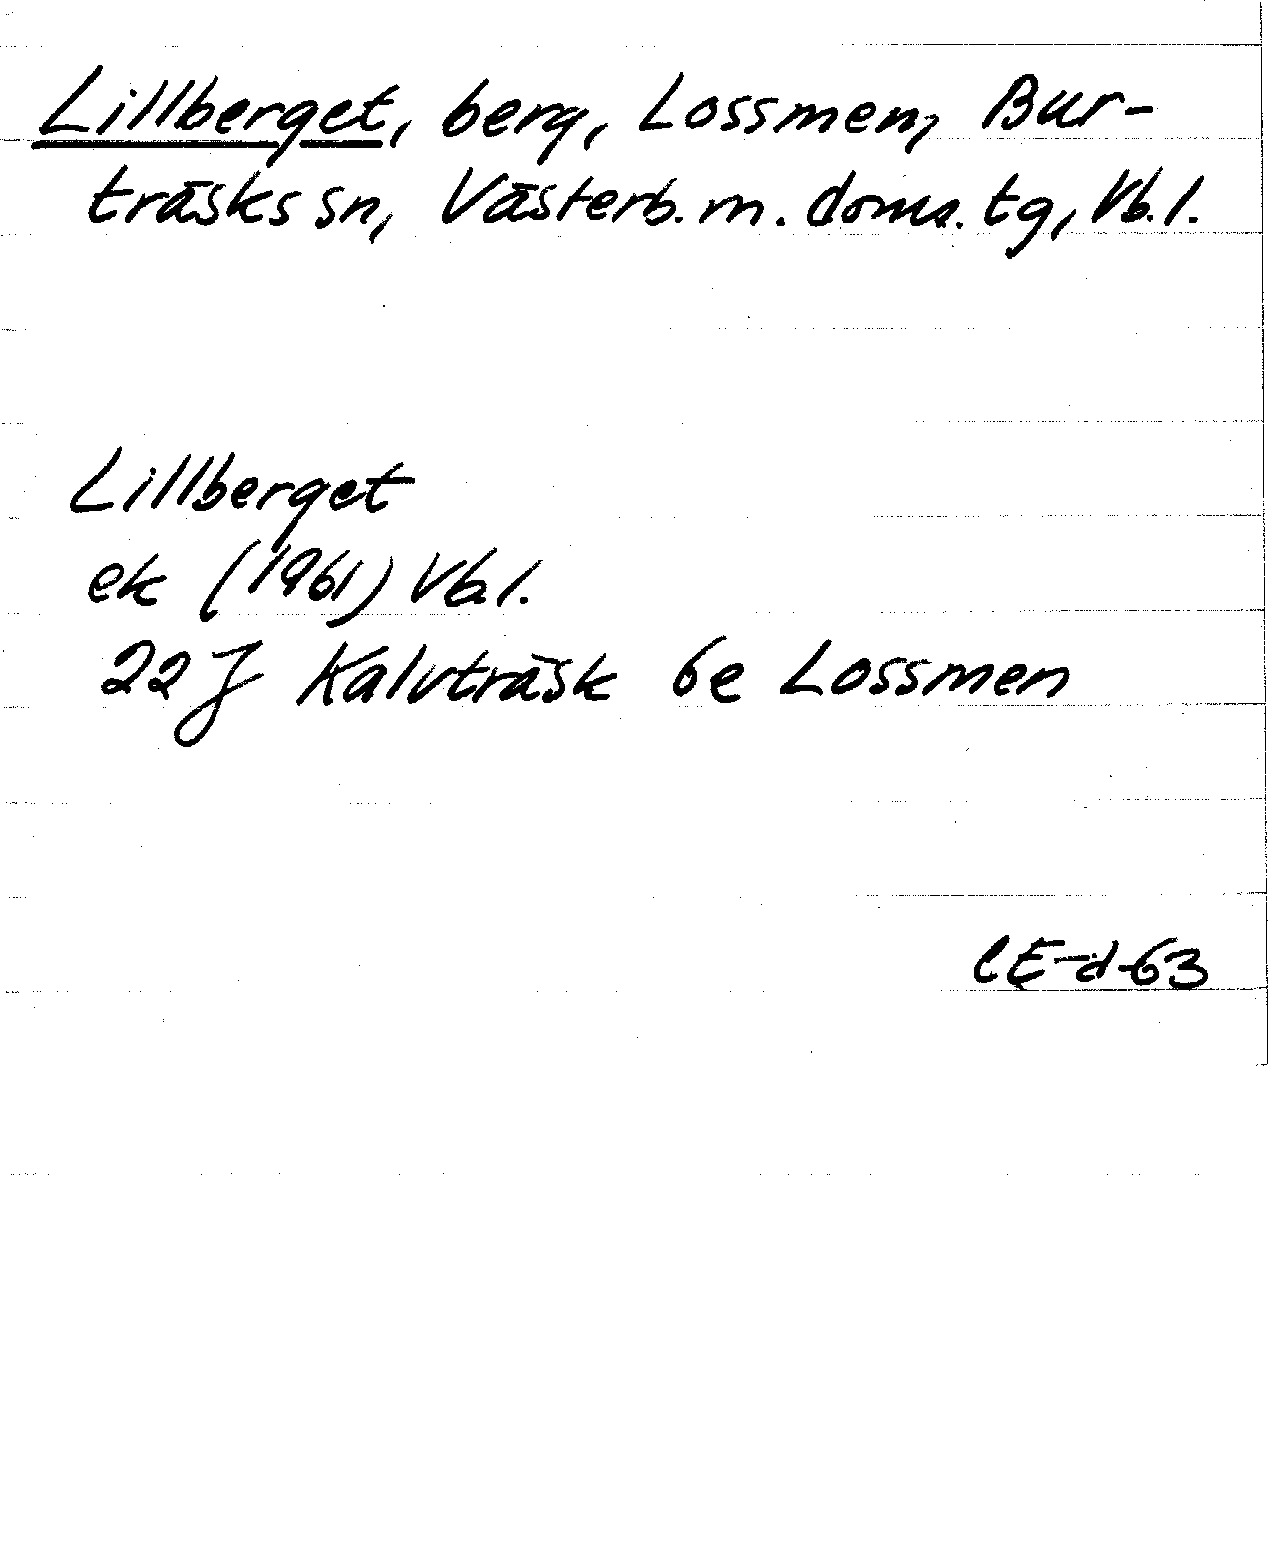 Lillberget, berg, Lossmen, Bur-
träsks sn, Västerb. m. doms. tg, Vb. l.
Lillberget
ek (1961) Vb l.
22 J Kalvträsk 6e Lossmen
CE-d-63